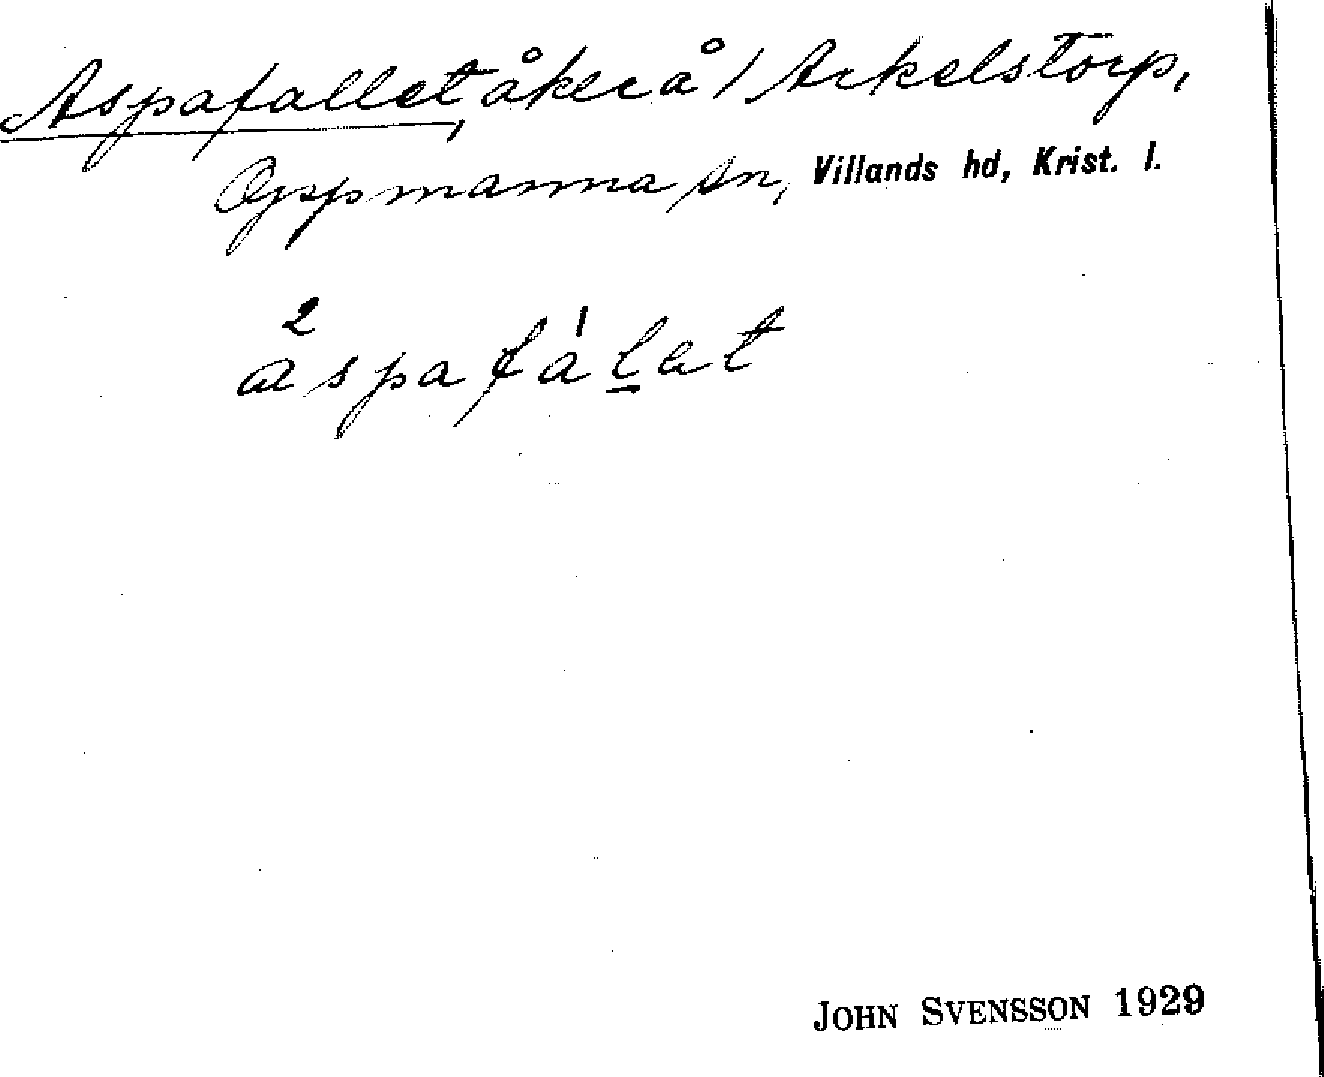 Aspafallet, åker å 1 Arkelstorp,
Oppmanna sn, Villands hd, Krist. l.
2 1
aspafalet
JOHN SVENSSON 1929